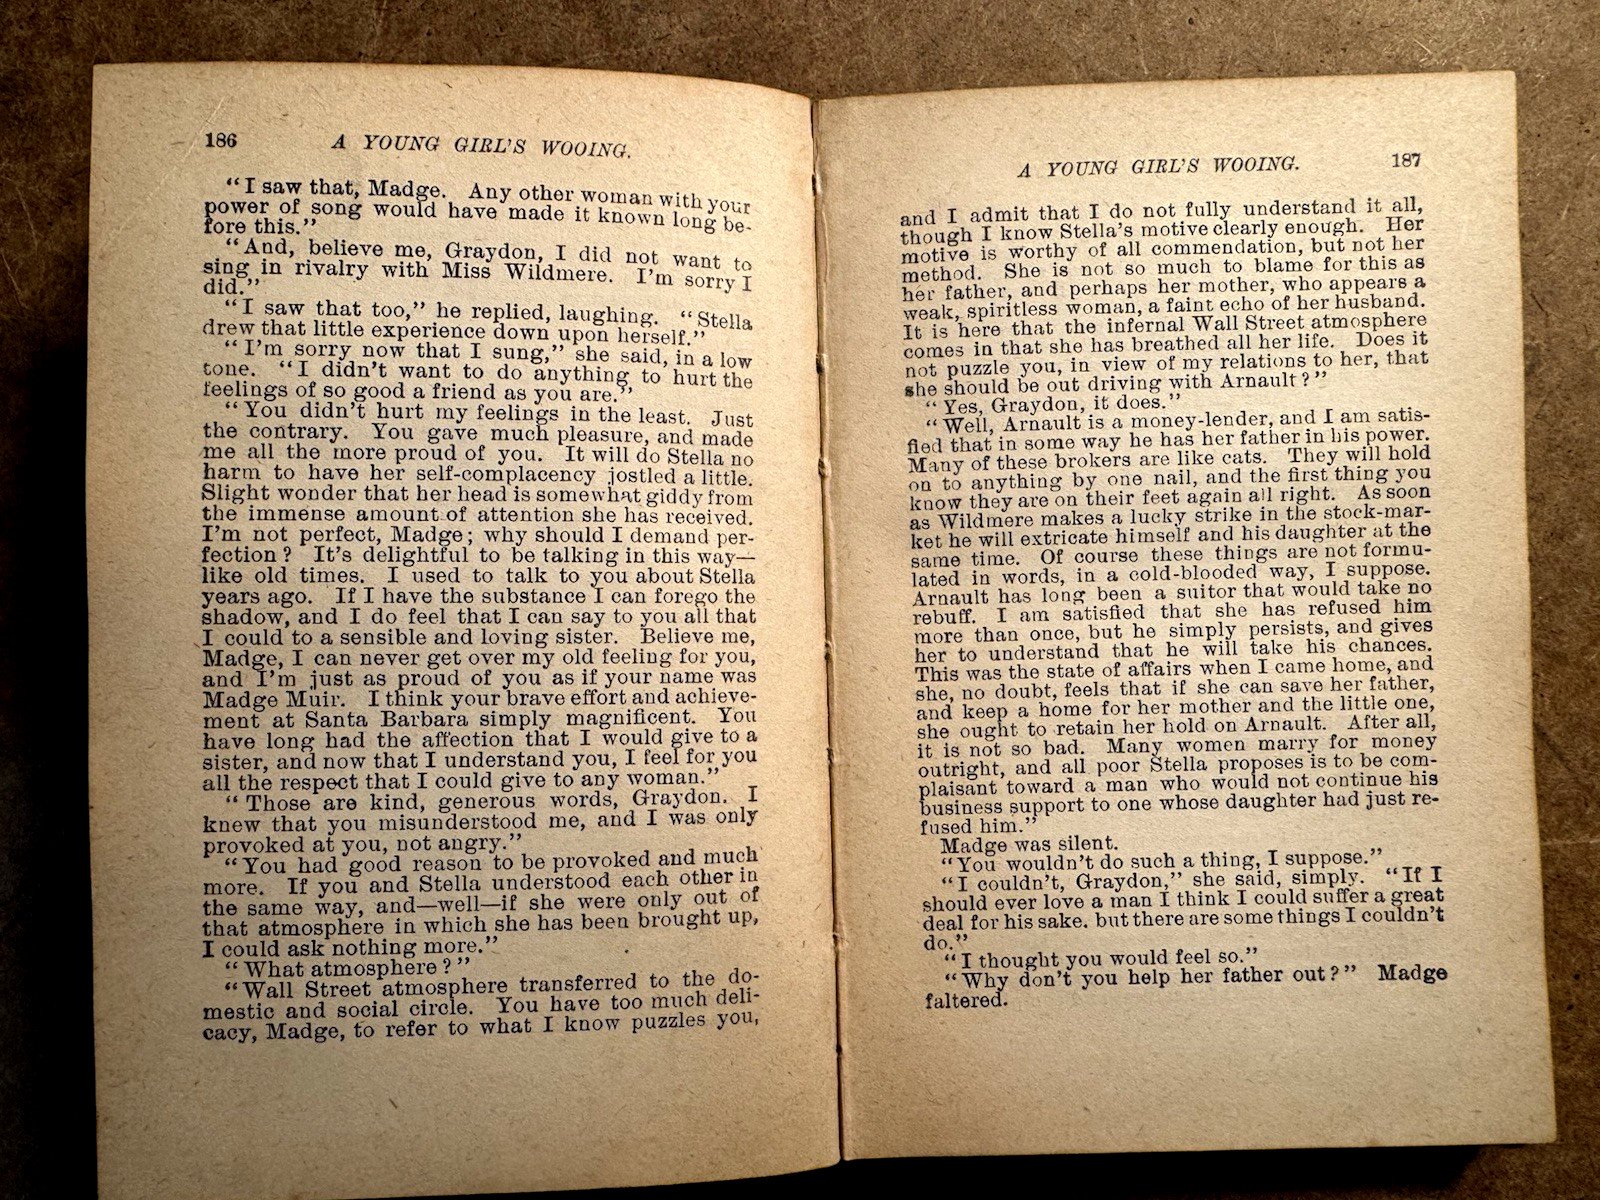 186 A YOUNG GIRL'S WOOING.
“I saw that, Madge. Any other woman with your
power of song would have made it known long be-
fore this.”
“And, believe me, Graydon, I did not want to
sing in rivalry with Miss Wildmere. I'm sorry I
did.”
“I saw that too,” he replied, laughing. “Stella
drew that little experience down upon herself.”
“I'm sorry now that I sung,” she said, in a low
tone. “I didn't want to do anything to hurt the
feelings of so good a friend as you are.”
“You didn't hurt my feelings in the least. Just
the contrary. You gave much pleasure, and made
me all the more proud of you. It will do Stella no
harm to have her self-complacency jostled a little.
Slight wonder that her head is somewhat giddy from
the immense amount of attention she has received.
I'm not perfect, Madge; why should I demand per-
fection? It's delightful to be talking in this way—
like old times. I used to talk to you about Stella
years ago. If I have the substance I can forego the
shadow, and I do feel that I can say to you all that
I could to a sensible and loving sister. Believe me,
Madge, I can never get over my old feeling for you,
and I'm just as proud of you as if your name was
Madge Muir. I think your brave effort and achieve-
ment at Santa Barbara simply magnificent. You
have long had the affection that I would give to a
sister, and now that I understand you, I feel for you
all the respect that I could give to any woman.”
“Those are kind, generous words, Graydon. I
knew that you misunderstood me, and I was only
provoked at you, not angry.”
“You had good reason to be provoked and much
more. If you and Stella understood each other in
the same way, and—well—if she were only out of
that atmosphere in which she has been brought up,
I could ask nothing more.”
“What atmosphere?”
“Wall Street atmosphere transferred to the do-
mestic and social circle. You have too much deli-
cacy, Madge, to refer to what I know puzzles you,
A YOUNG GIRL'S WOOING. 187
and I admit that I do not fully understand it all,
though I know Stella's motive clearly enough. Her
motive is worthy of all commendation, but not her
method. She is not so much to blame for this as
her father, and perhaps her mother, who appears a
weak, spiritless woman, a faint echo of her husband.
It is here that the infernal Wall Street atmosphere
comes in that she has breathed all her life. Does it
not puzzle you, in view of my relations to her, that
she should be out driving with Arnault?”
“Yes, Graydon, it does.”
“Well, Arnault is a money-lender, and I am satis-
fied that in some way he has her father in his power.
Many of these brokers are like cats. They will hold
on to anything by one nail, and the first thing you
know they are on their feet again all right. As soon
as Wildmere makes a lucky strike in the stock-mar-
ket he will extricate himself and his daughter at the
same time. Of course these things are not formu-
lated in words, in a cold-blooded way, I suppose.
Arnault has long been a suitor that would take no
rebuff. I am satisfied that she has refused him
more than once, but he simply persists, and gives
her to understand that he will take his chances.
This was the state of affairs when I came home, and
she, no doubt, feels that if she can save her father,
and keep a home for her mother and the little one,
she ought to retain her hold on Arnault. After all,
it is not so bad. Many women marry for money
outright, and all poor Stella proposes is to be com-
plaisant toward a man who would not continue his
business support to one whose daughter had just re-
fused him.”
Madge was silent.
“You wouldn't do such a thing, I suppose.”
“I couldn't, Graydon,” she said, simply. “If I
should ever love a man I think I could suffer a great
deal for his sake. but there are some things I couldn't
do.”
“I thought you would feel so.”
“Why don't you help her father out?” Madge
faltered.